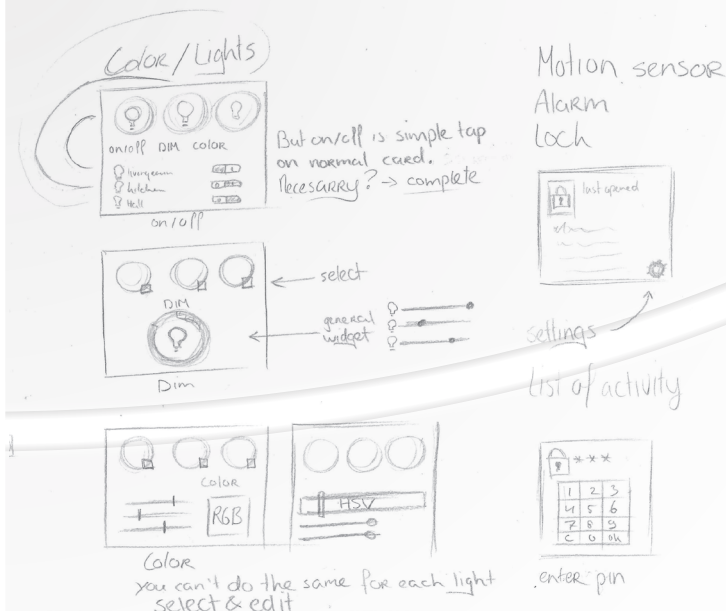 Color / Lights
on/off DIM COLOR
livingroom
kitchen
Hall
on/off
But on/off is simple tap
on normal card.
Necesarry? → complete
DIM
Dim
← select
← general
widget
COLOR
RGB
Color
HSV
you can't do the same for each light
select & edit
Motion sensor
Alarm
Lock
last opened
settings
List of activity
* * *
1 2 3
4 5 6
7 8 9
C 0 ok
enter pin